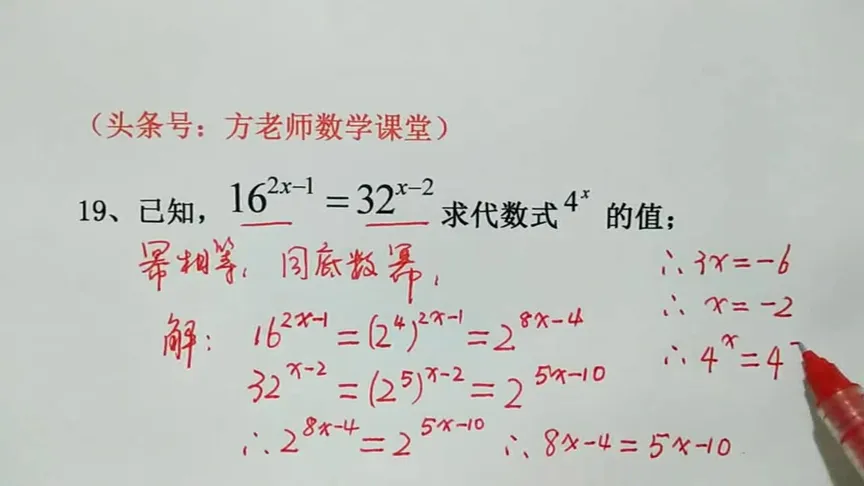 （头条号：方老师数学课堂）
19、已知，16^{2x-1} = 32^{x-2} 求代数式 4^x 的值；
幂相等，同底数幂，
解：16^{2x-1} = (2^4)^{2x-1} = 2^{8x-4}
32^{x-2} = (2^5)^{x-2} = 2^{5x-10}
∴ 2^{8x-4} = 2^{5x-10} ∴ 8x-4 = 5x-10
∴ 3x = -6
∴ x = -2
∴ 4^x = 4^-